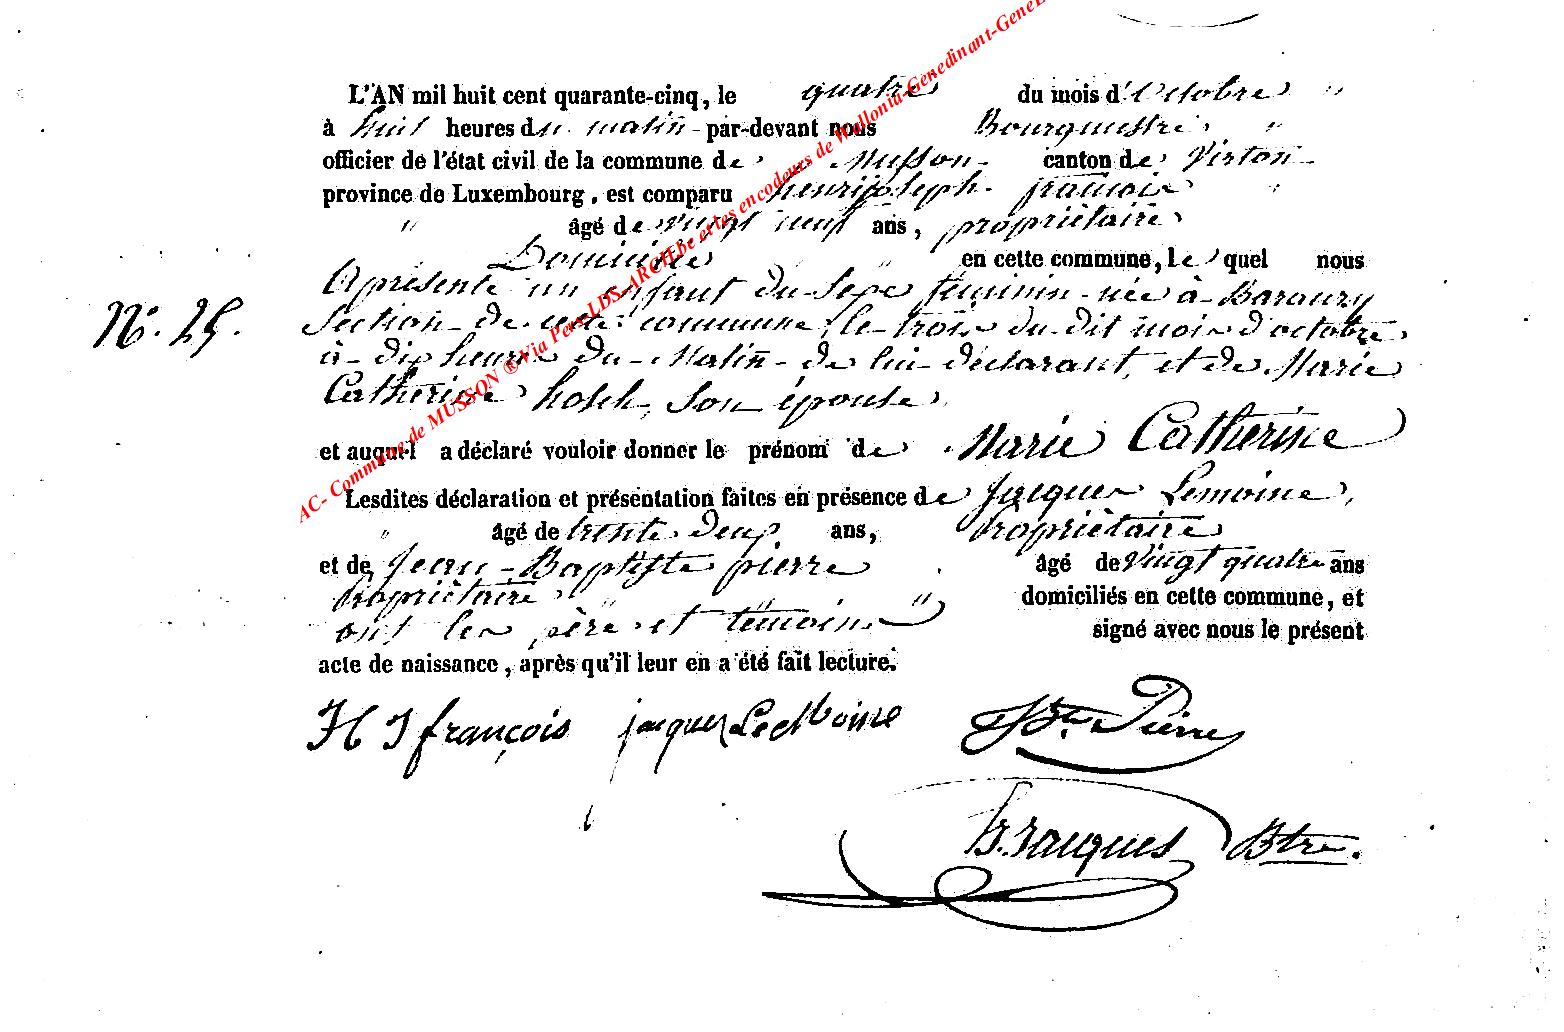 L'AN mil huit cent quarante-cinq, le quatre du mois d'Octobre "
à huit heures du matin par-devant nous Bourguestre "
officier de l'état civil de la commune de Musson canton de Virton
province de Luxembourg, est comparu henrijoseph françois "
" âgé de vingt neuf ans, propriètaire
Domicilié " en cette commune, le quel nous
A présenté un enfant du sexe féminin née à Baranzy
N°. 25.
Section de cette commune, le trois du dit mois d'octobre
à dix heures du Matin de lui déclarant, et de Marie
Catherine son épouse
et auquel a déclaré vouloir donner le prénom de Marie Catherine
Lesdites déclaration et présentation faites en présence de Jacques Lemoine,
" âgé de trente deux ans, propriètaire
et de Jean-Baptiste pierre âgé de vingt quatre ans
propriètaire " " domiciliés en cette commune, et
ont les père et témoins " signé avec nous le présent
acte de naissance, après qu'il leur en a été fait lecture.
H J françois jacques LeMoine JBte. Pierre
Jacques Btre.
AC- Commune de MUSSON ® Via Pers-LDS-ARCH.be et les encodeurs de Wallonia-Genedinant-GeneL